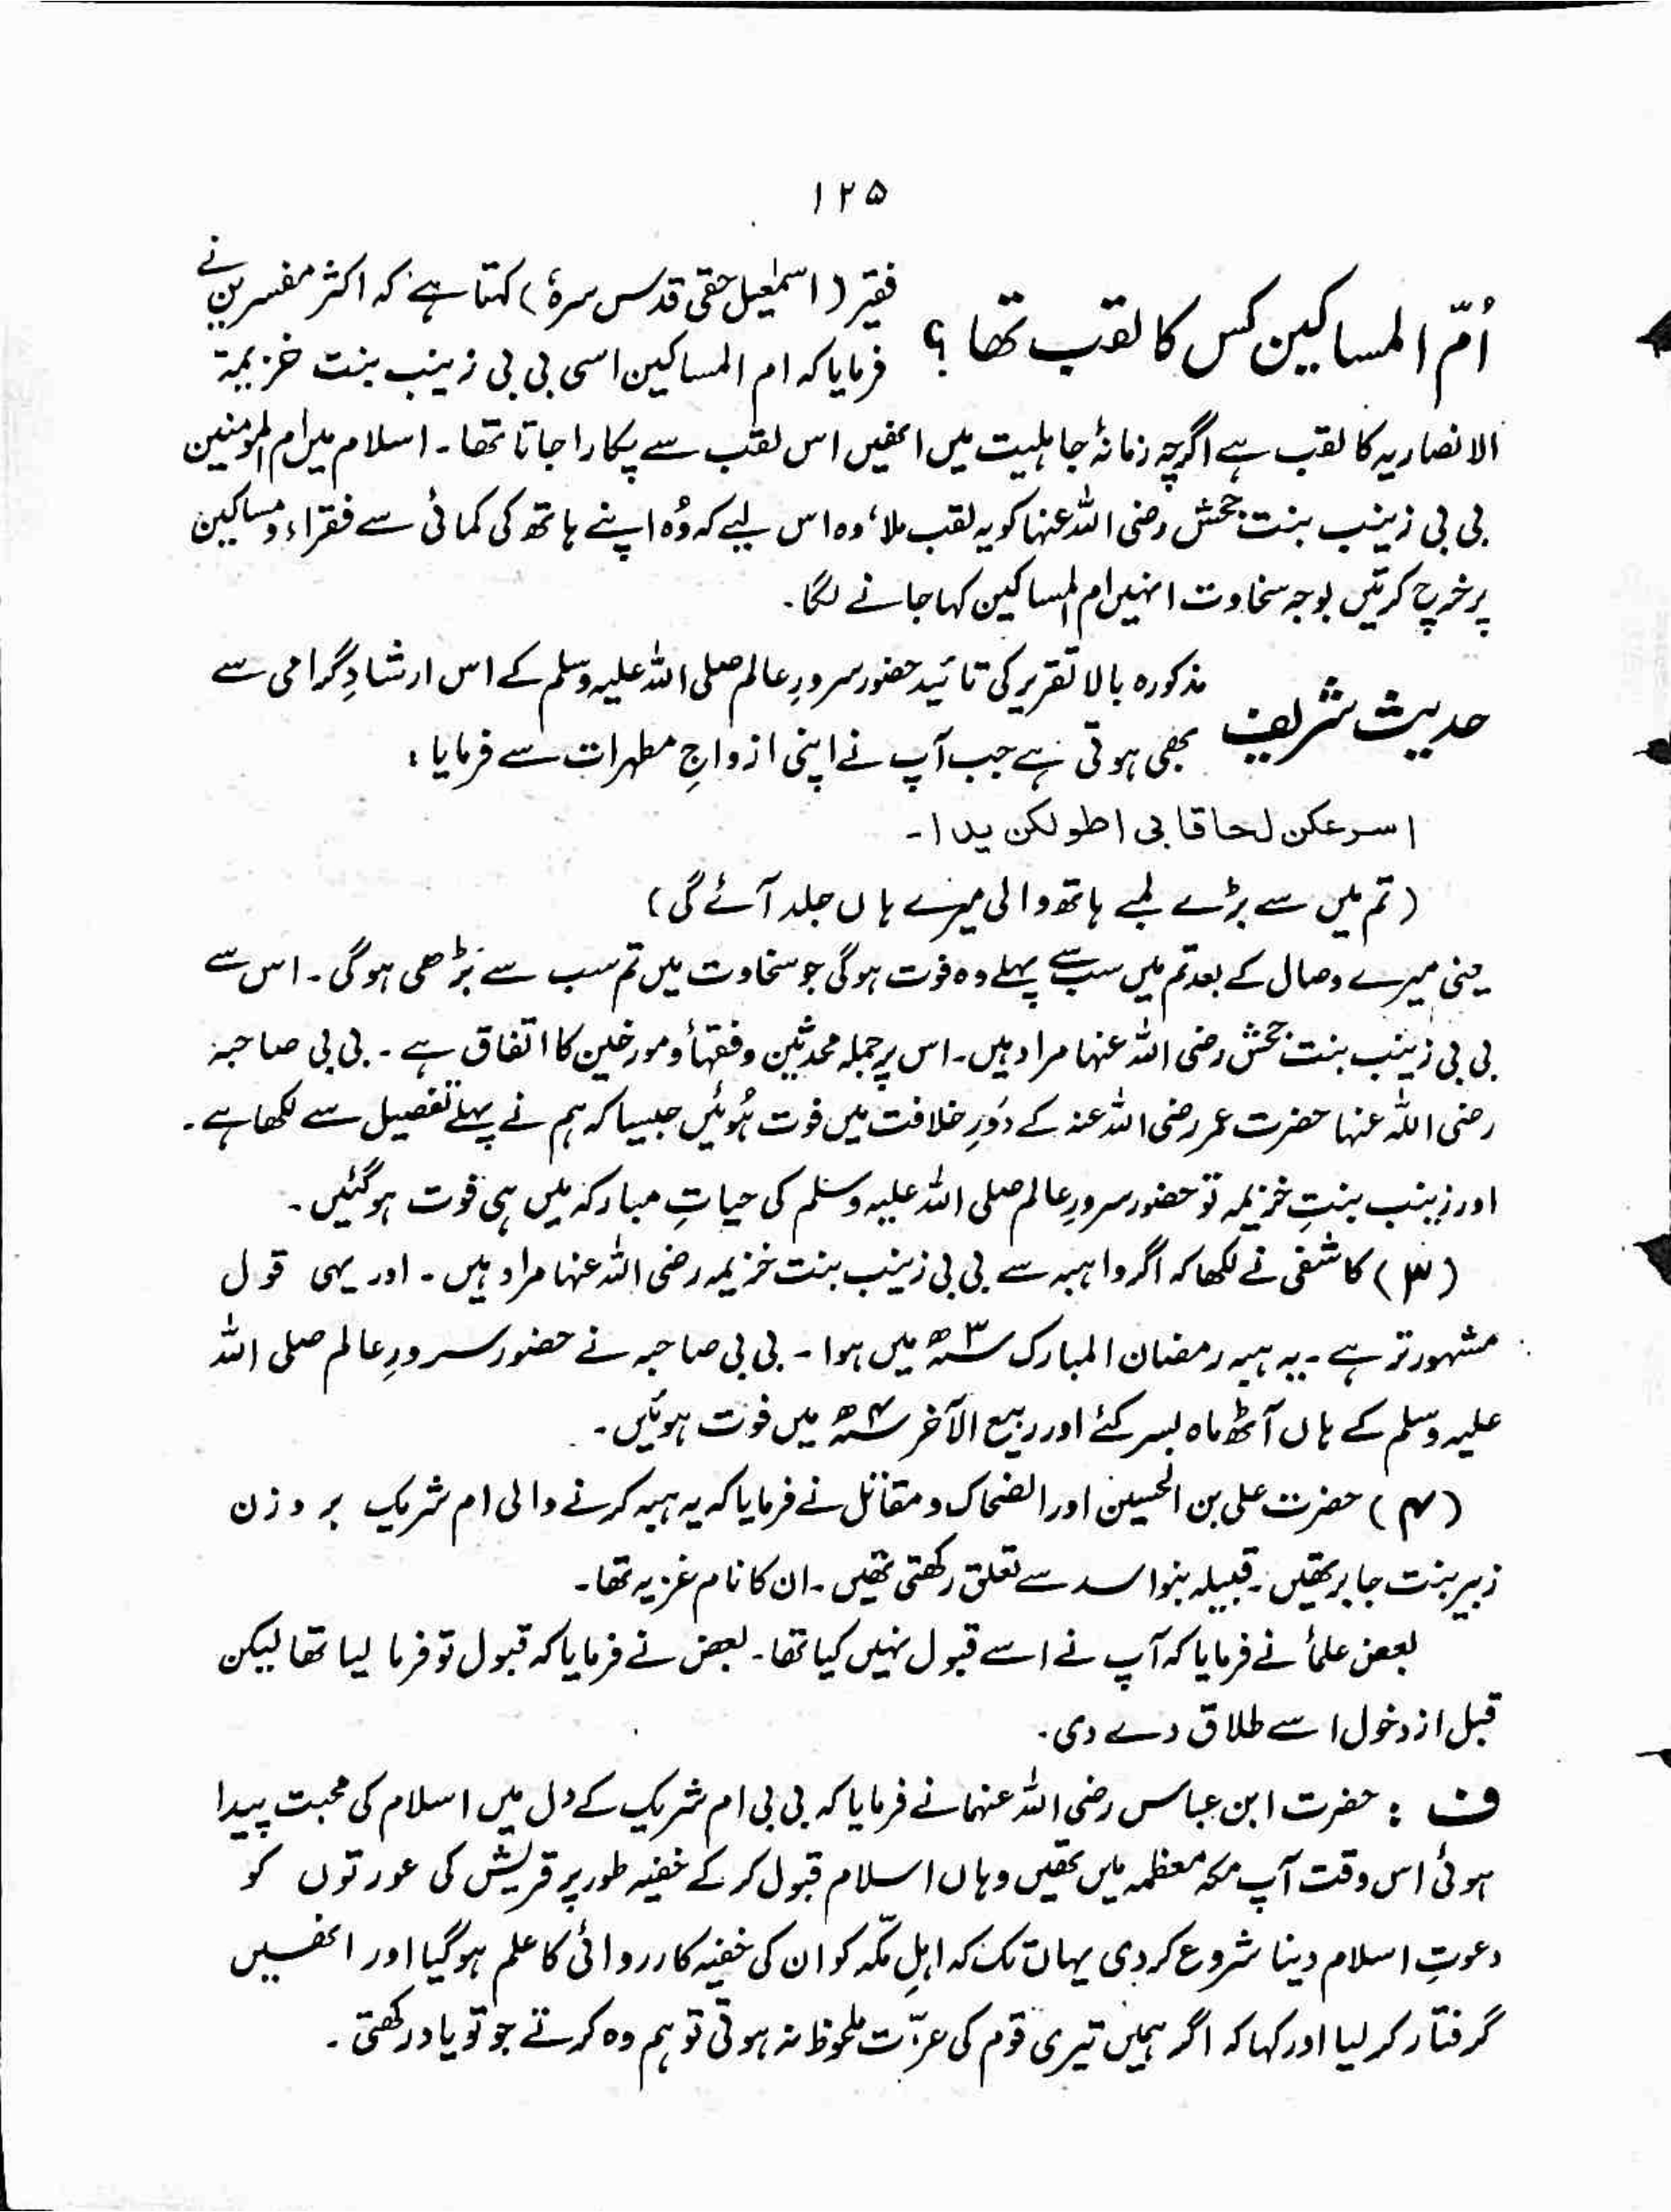 ۱۲۵
اُمّ المساکین کس کا لقب تھا ؟
فقیر (اسمٰعیل حقی قدس سرہٗ) کہتا ہے کہ اکثر مفسرین نے
فرمایا کہ ام المساکین اسی بی بی زینب بنت خزیمۃ
الانصاریہ کا لقب ہے اگرچہ زمانۂ جاہلیت میں انھیں اس لقب سے پکارا جاتا تھا۔ اسلام میں ام المومنین
بی بی زینب بنت جحش رضی اللہ عنہا کو یہ لقب ملا، وہ اس لیے کہ وُہ اپنے ہاتھ کی کمائی سے فقراء و مساکین
پر خرچ کرتیں بوجہ سخاوت انہیں ام المساکین کہا جانے لگا۔
حدیث شریف
مذکورہ بالا تقریر کی تائید حضور سرورِ عالم صلی اللہ علیہ وسلم کے اس ارشادِ گرامی سے
بھی ہوتی ہے جب آپ نے اپنی ازواجِ مطہرات سے فرمایا :
اسرعکن لحاقا بی اطولکن یدا۔
(تم میں سے بڑے لمبے ہاتھ والی میرے ہاں جلد آئے گی)
یعنی میرے وصال کے بعد تم میں سب سے پہلے وہ فوت ہوگی جو سخاوت میں تم سب سے بڑھی ہوگی۔ اس سے
بی بی زینب بنت جحش رضی اللہ عنہا مراد ہیں۔ اس پر جملہ محدثین و فقہأ و مورخین کا اتفاق ہے۔ بی بی صاحبہ
رضی اللہ عنہا حضرت عمر رضی اللہ عنہ کے دَورِ خلافت میں فوت ہُوئیں جیسا کہ ہم نے پہلے تفصیل سے لکھا ہے۔
اور زینب بنتِ خزیمہ تو حضور سرورِ عالم صلی اللہ علیہ وسلم کی حیاتِ مبارکہ میں ہی فوت ہوگئیں۔
(۳) کاشفی نے لکھا کہ اگر واہبہ سے بی بی زینب بنت خزیمہ رضی اللہ عنہا مراد ہیں۔ اور یہی قول
مشہور تر ہے۔ یہ ہبہ رمضان المبارک ۳ھ میں ہوا۔ بی بی صاحبہ نے حضور سرورِ عالم صلی اللہ
علیہ وسلم کے ہاں آٹھ ماہ بسر کئے اور ربیع الآخر ۴ھ میں فوت ہوئیں۔
(۴) حضرت علی بن الحسین اور الضحاک و مقاتل نے فرمایا کہ یہ ہبہ کرنے والی ام شریک بر وزن
زبیر بنت جابر تھیں۔ قبیلہ بنو اسد سے تعلق رکھتی تھیں۔ ان کا نام غزیہ تھا۔
بعض علمأ نے فرمایا کہ آپ نے اسے قبول نہیں کیا تھا۔ بعض نے فرمایا کہ قبول تو فرما لیا تھا لیکن
قبل از دخول اسے طلاق دے دی۔
ف : حضرت ابن عباس رضی اللہ عنہما نے فرمایا کہ بی بی ام شریک کے دل میں اسلام کی محبت پیدا
ہوئی اس وقت آپ مکہ معظمہ میں تھیں وہاں اسلام قبول کر کے خفیہ طور پر قریش کی عورتوں کو
دعوتِ اسلام دینا شروع کر دی یہاں تک کہ اہلِ مکّہ کو ان کی خفیہ کارروائی کا علم ہوگیا اور انھیں
گرفتار کر لیا اور کہا کہ اگر ہمیں تیری قوم کی عزّت ملحوظ نہ ہوتی تو ہم وہ کرتے جو تو یاد رکھتی۔